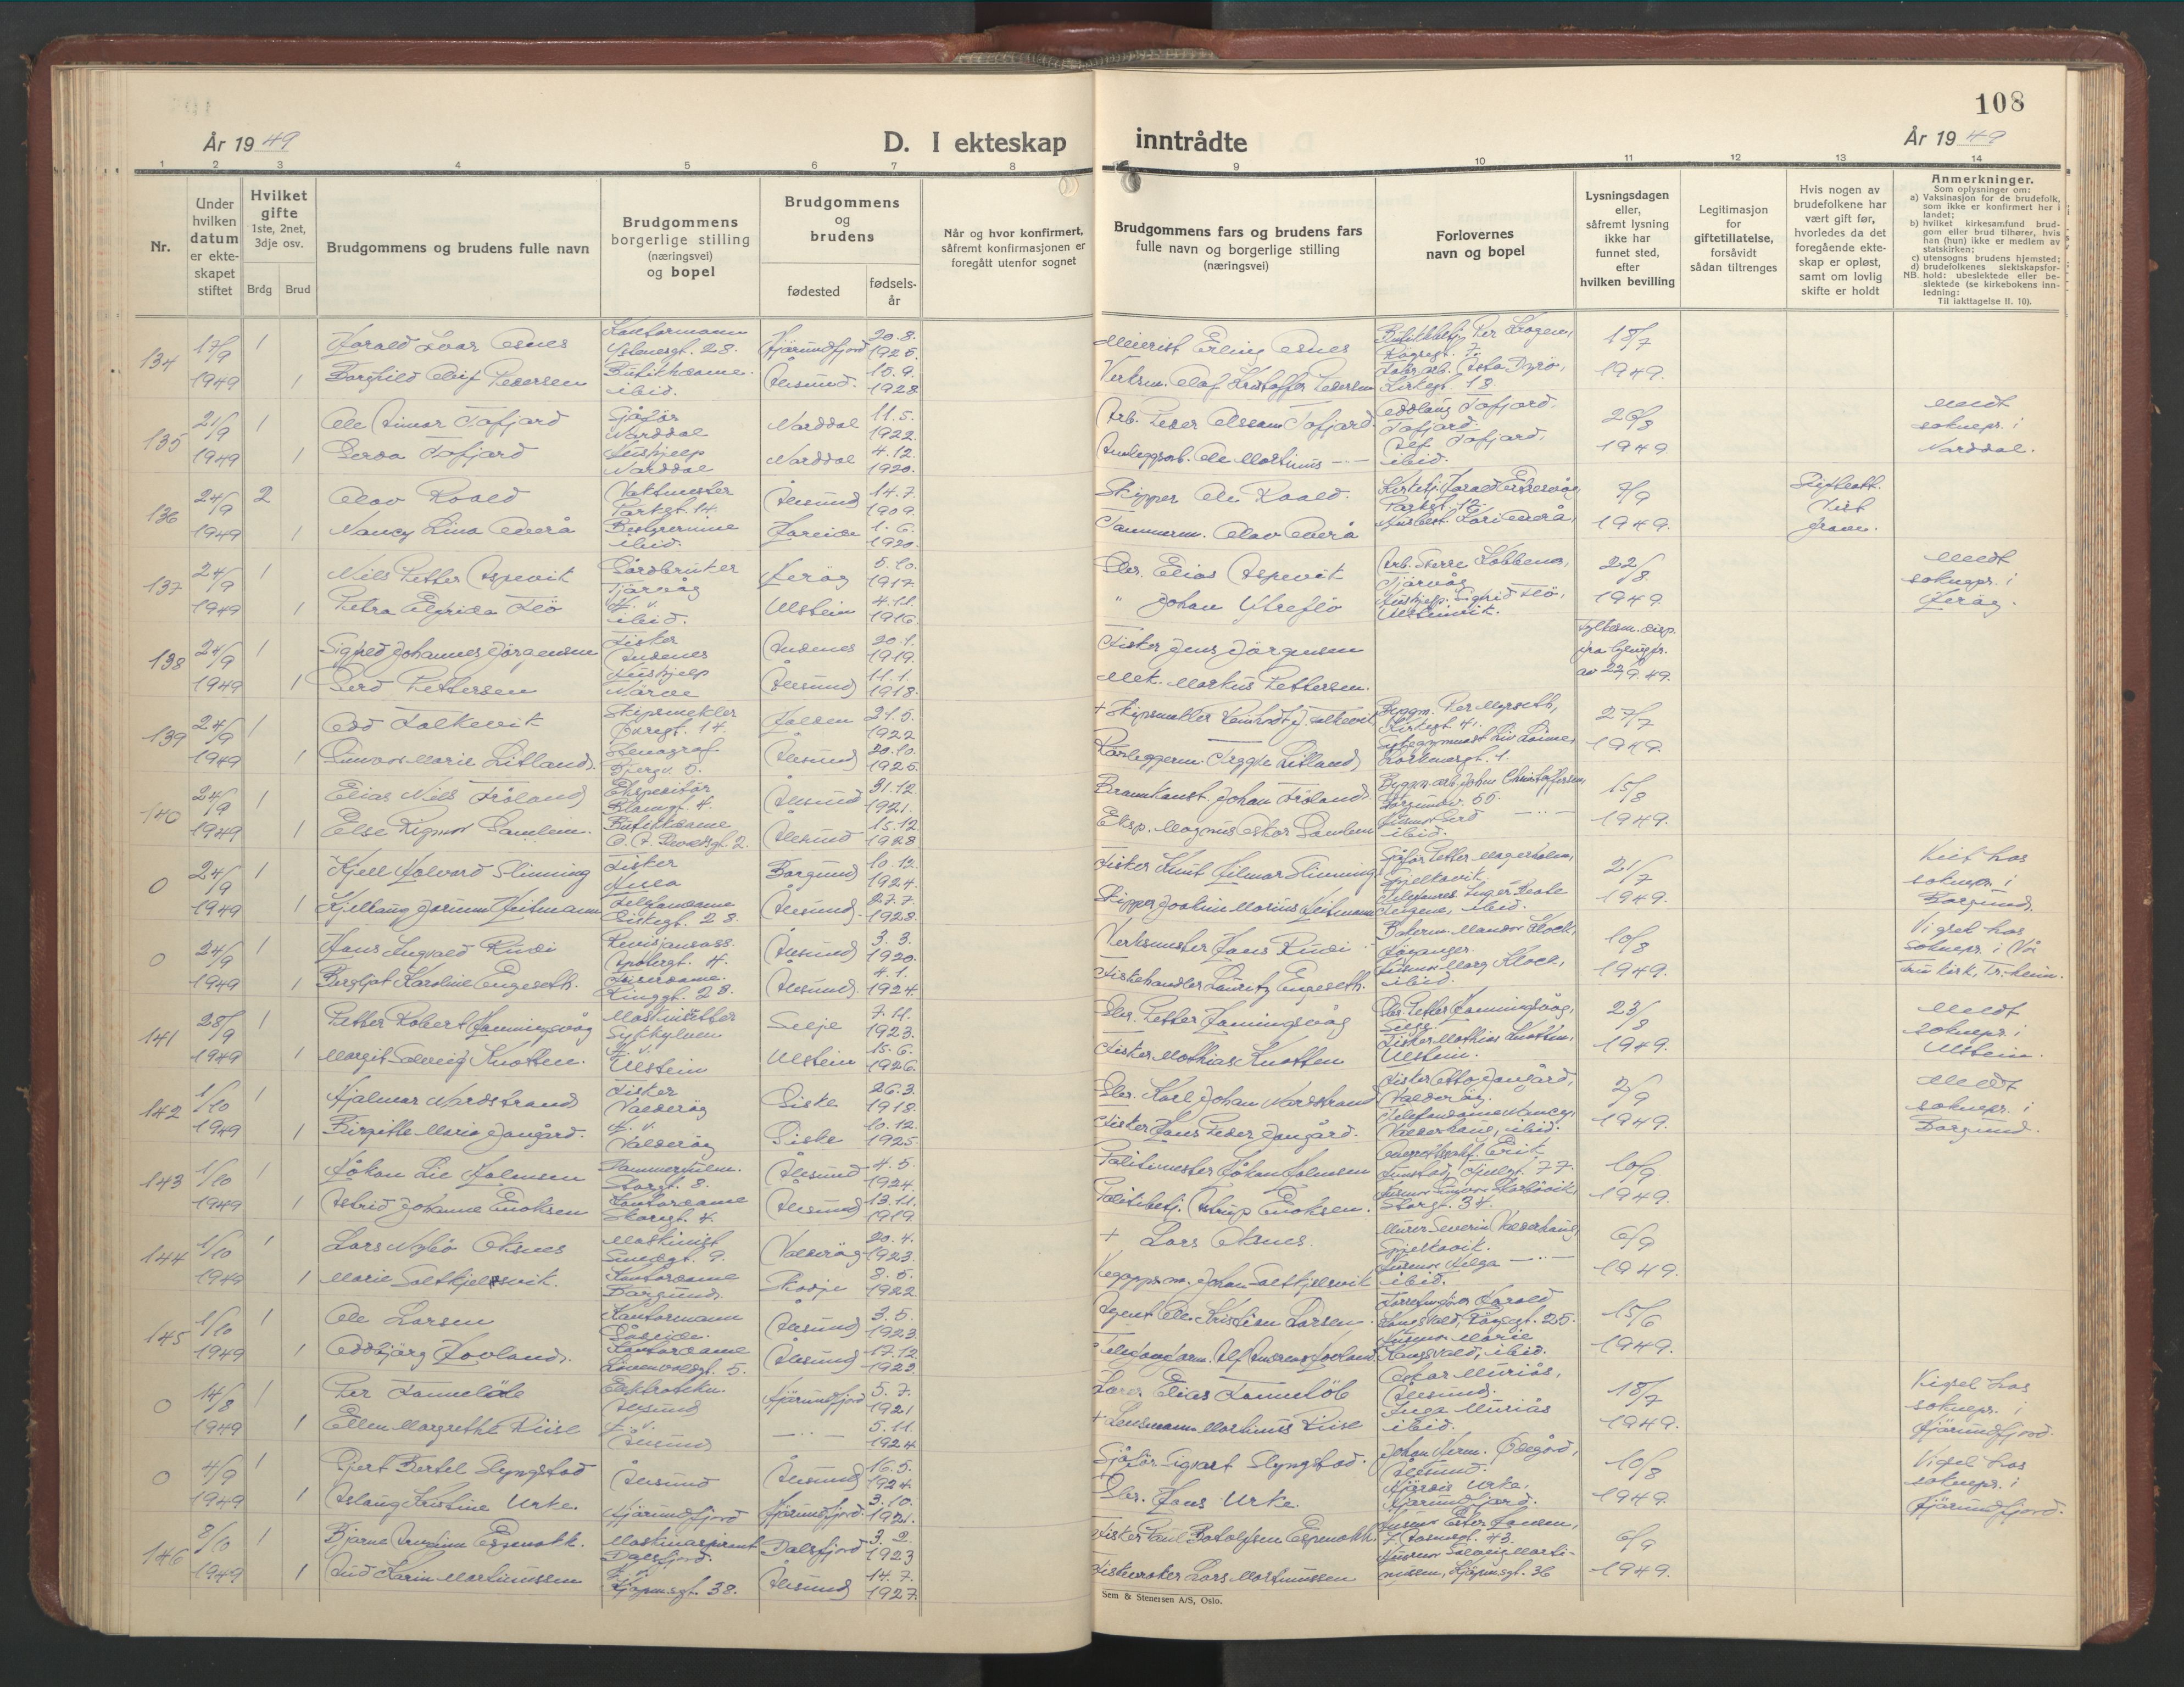 108
År 1949
D. I ekteskap inntrådte
År 1949
1 2 3 4 5 6 7 8 9 10 11 12 13 14
Nr.
Under hvilken datum er ekteskapet stiftet
Hvilket gifte
1ste, 2net, 3dje osv.
Brdg Brud
Brudgommens og brudens fulle navn
Brudgommens borgerlige stilling (næringsvei) og bopel
Brudgommens og brudens
fødested
fødselsår
Når og hvor konfirmert, såfremt konfirmasjonen er foregått utenfor sognet
Brudgommens fars og brudens fars fulle navn og borgerlige stilling (næringsvei)
Forlovernes navn og bopel
Lysningsdagen eller, såfremt lysning ikke har funnet sted, efter hvilken bevilling
Legitimasjon for giftetillatelse, forsåvidt sådan tiltrenges
Hvis nogen av brudefolkene har vært gift før, hvorledes da det foregående ekteskap er opløst, samt om lovlig skifte er holdt
Anmerkninger.
Som oplysninger om:
a) Vaksinasjon for de brudefolk, som ikke er konfirmert her i landet;
b) hvilket kirkesamfund brudgom eller brud tilhører, hvis han (hun) ikke er medlem av statskirken;
c) utensogns brudens hjemsted;
d) brudefolkenes slektskapsforhold: ubeslektede eller beslektede (se kirkebokens innledning:
NB.
Til iakttagelse II. 10).
134 17/9 1 Harald Ivar Asnes Kontormann Hjørundfjord 20.8. Meierist Erling Asnes 18/7
Ystenesgt. 28. 1925
1949 1 Borghild Oluf Pedersen Butikkdame Ålesund 10.9. Verksm. Olaf Kristoffer Pedersen Kirkegt. 18 1949.
ibid. 1928
135 21/9 1 Ole Einar Tafjord Sjåfør Norddal 11.5. Arb. Peder Olssonn Tafjord Oddlaug Tafjord. 20/8 Meldt
Norddal 1922. Tafjord. soknepr. i
1949 1 Gerda Tafjord Hushjelp Norddal 4.12. Anleggsarb. Ole Martinus —"— Alf Tafjord, 1949 Norddal.
Norddal 1920. ibid.
136 24/9 2 Olav Roald Vaktmester Ålesund 14.7. Skipper Ole Roald. 7/9 Skifteatt.
Parkgt. 14. 1909. Parkgt. 12.
1949 1 Nancy Lina Øverå Bestyrerinne Hareide 1.6. Tømmerm. Olav Øverå Kari Øverå, 1949.
ibid. 1920.
137 24/9 1 Nils Petter Aspevik Gårdbruker Herøy 5.10. Gbr. Elias Aspevik 22/8 Meldt
Tjørvåg 1917. Tjørvåg soknepr. i
1949 1 Petra Elfrida Flø H. v. Ulstein 4.11. " Johan Ytreflø Hushjelp Sigrid Flø, 1949. Herøy.
ibid. 1916 Ulsteinvik.
138 24/9 1 Sigfred Johannes Jørgensen Fisker Andenes 20.1. Fisker Jens Jørgensen Fylkesm. disp.
Andenes 1919.
1949 1 Gerd Pettersen Hushjelp Ålesund 11.1. Mek. Markus Pettersen. av 22/9.49.
Nørve 1918.
139 24/9 1 Odd Falkevik Skipsmekler Halden 21.5. + Skipsmekler Reinholdt J. Falkevik Byggm. Per Myrseth, 27/7
14. 1922 Kirkegt. 41.
1949 1 Gunvor Marie Litland. Stenograf Ålesund 20.10. Rørleggerm. Trygve Litland 1949.
1925. 1.
140 24/9 1 Elias Nils Frøland Ekspeditør Ålesund 31.12. Brannkonst. Johan Frøland. Johan Christoffersen, 15/8
4. 1921. Borgundv. 55.
1949 1 Else Rigmor Samlem. Butikkdame Ålesund 15.12. Eksp. Magnus Oskar Samlem Husmor Gerd —"— 1949.
2. 1928 ibid.
0 24/9 1 Kjell Halvard Slinning Fisker Borgund 10.12. Fisker Knut Hilmar Slinning Sjåfør Petter Magerholm, 21/7 Viet hos
1924. Spjelkavik. soknepr. i
1949 1 Kjellaug Jorunn Heitmann Telefondame Ålesund 27.7. Skipper Joakim Marius Heitmann ibid. 1949. Borgund.
28. 1928.
0 24/9 1 Hans Ingvald Rudi Revisjonsass. Ålesund 3.3. Verksmester Hans Rudi Bakerm. Klock, 10/8 Vigslet hos
Apotekergt. 4. 1920. soknepr. i Vår
1949 1 Bergljot Karoline Engeseth. Frisørdame. Ålesund. 4.1. Fiskehandler Lauritz Engeseth. Husmor Klock, 1949. Frue kirk, Tr.heim.
Ringgt. 28. 1924 ibid.
141 28/9 1 Petter Robert Hamningsvåg Maskinsetter Selje 7.11. Gbr. Petter Hamningsvåg Gbr. Petter Hamningsvåg, 23/8 Meldt
1923. Selje. soknepr. i
1949 1 Margit Solveig Knotten. H. v. Ulstein 15.6. Fisker Mathias Knotten Fisker Mathias Knotten, 1949. Ulstein.
Ulstein 1926. Ulstein.
142 1/10 1 Hjalmar Nordstrand Fisker Giske 26.3. Gbr. Karl Johan Nordstrand Fisker Otto Jangård, 2/9 Meldt
Valderøy 1918. Valderøy. soknepr. i
1949 1 Birgitte Marie Jangård. H. v. Giske 10.12. Fisker Hans Peder Jangård. Telefondame Nancy 1949. Borgund.
Valderøy 1925. Valderhaug, ibid.
143 1/10 1 Håkon Lie Holmsen Ålesund 4.5. Politimester Håkon Holmsen Erik 10/9
Storgt. 8. 1924. 77.
1949 1 Astrid Johanne Enoksen Kontordame Ålesund 13.11. Politibetj. Astrup Enoksen. 1949.
4. 1919. Storgt. 34.
144 1/10 1 Lars Oksnes Maskinist Valderøy 20.4. + Lars Oksnes. Murer Severin Valderhaug, 6/9
9. 1923. Spjelkavik.
1949 1 Marie Soltkjelsvik. Kontordame Skodje 8.5. Johan Soltkjelsvik Husmor Helga —"— 1949.
Borgund 1922 ibid.
145 1/10 1 Ole Larsen Kontormann Ålesund 3.5. Agent Ole Kristian Larsen. Harald 15/6
1923 25.
1949 1 Oddbjørg Hovland. Kontordame Ålesund 17.12. Alf Andreas Hovland. Husmor Marie 1949.
Løvenvoldgt. 5. 1923 ibid.
0 14/8 1 Per Tonneløb Hjørundfjord 5.7. Lærer Elias Tonneløb Oskar Muriås, 18/7 Vigsel hos
Ålesund 1921 Ålesund. soknepr. i
1949 1 Ellen Margrethe Riise H. v. —"— 5.11. + Lensmann Martinus Riise Inga Muriås 1949. Hjørundfjord.
Ålesund 1924 ibid.
0 4/9 1 Gjert Bertel Slyngstad Ålesund Ålesund 16.5. Sjåfør Sigvart Slyngstad. Johan Herm. Ødegård, 10/8 Vigsel hos
1924. Ålesund. soknepr. i
1949 1 Aslaug Kristine Urke. Hjørundfjord Hjørundfjord. 3.10. Gbr. Hans Urke. Urke, 1949. Hjørundfjord.
1921. Hjørundfjord.
146 8/10 1 Bjarne Espenakk. Maskinaspirant Dalsfjord 3.2. Fisker Paul Botolfsen Espenakk. Husmor Ester Hansen, 6/9
Dalsfjord. 1923 43
1949 1 Aud Karin Martinussen H. v. Ålesund 14.7. Fiskevraker Lars Martinussen Husmor Solveig Marti- 1949.
38. 1927. nussen, 36
Sem & Stenersen A/S, Oslo.